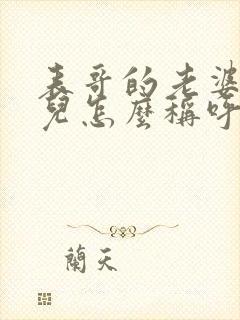 表哥的老婆
兒怎麼稱呼
蘭天